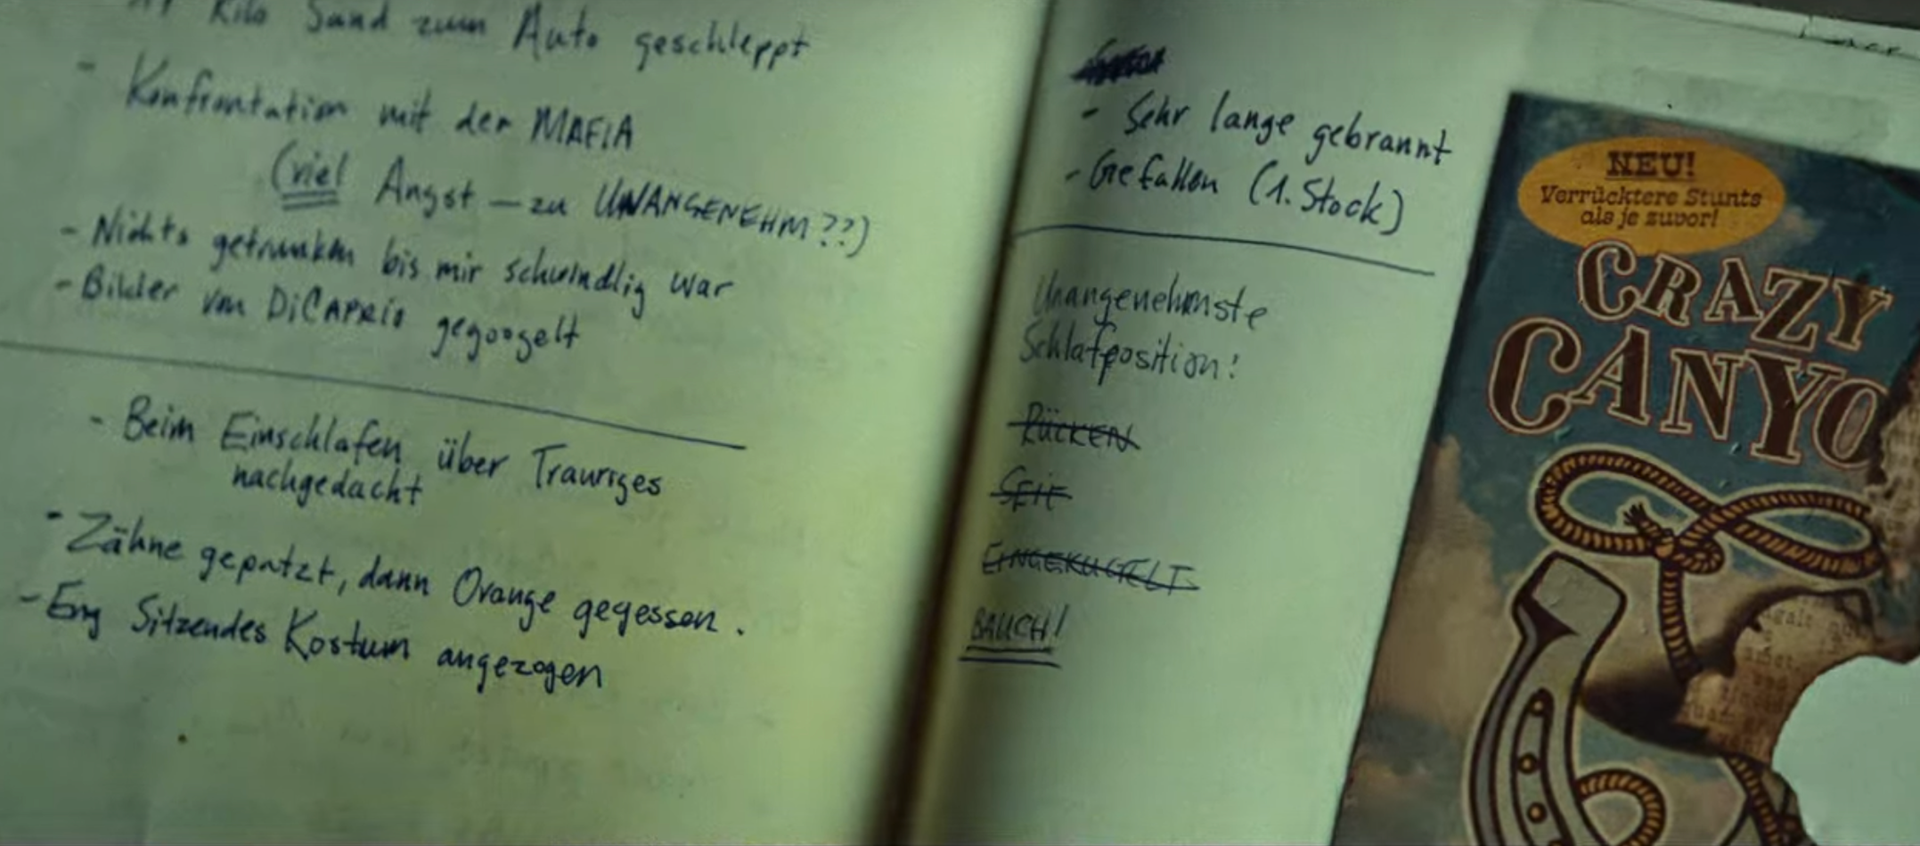 Kilo Sand zum Auto geschleppt
- Konfrontation mit der MAFIA
(viel Angst - zu UNANGENEHM??)
- Nichts getrunken bis mir schwindlig war
- Bilder von DiCAPRIO gegoogelt
- Beim Einschlafen über Trauriges
nachgedacht
- Zähne geputzt, dann Orange gegessen.
- Eng Sitzendes Kostüm angezogen
- Sehr lange gebrannt
- Gefallen (1. Stock)
Unangenehmste
Schlafposition:
RÜCKEN
SEITE
EINGEKUGELT
BAUCH!
NEU!
Verrücktere Stunts
als je zuvor!
CRAZY
CANYO